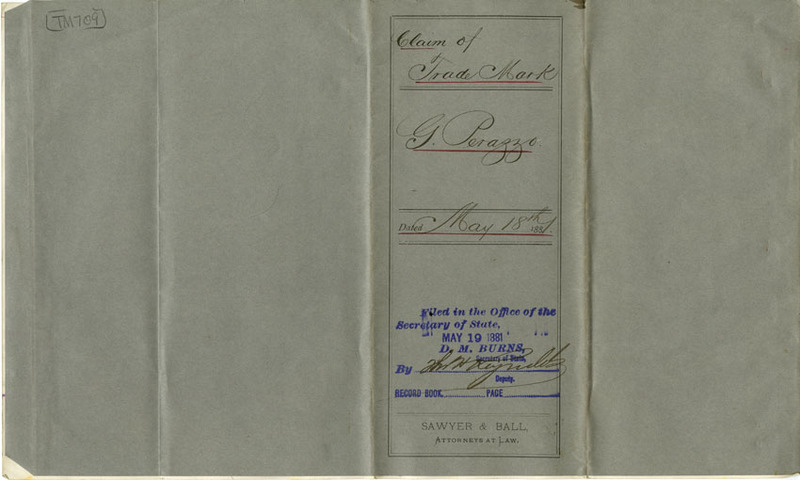 TM709
Claim of
Trade Mark
G. Perazzo.
Dated May 18th 1881.
Filed in the Office of the
Secretary of State,
MAY 19 1881
D. M. BURNS,
Secretary of State,
By Reynolds
Deputy.
RECORD BOOK, PAGE
SAWYER & BALL,
ATTORNEYS AT LAW.